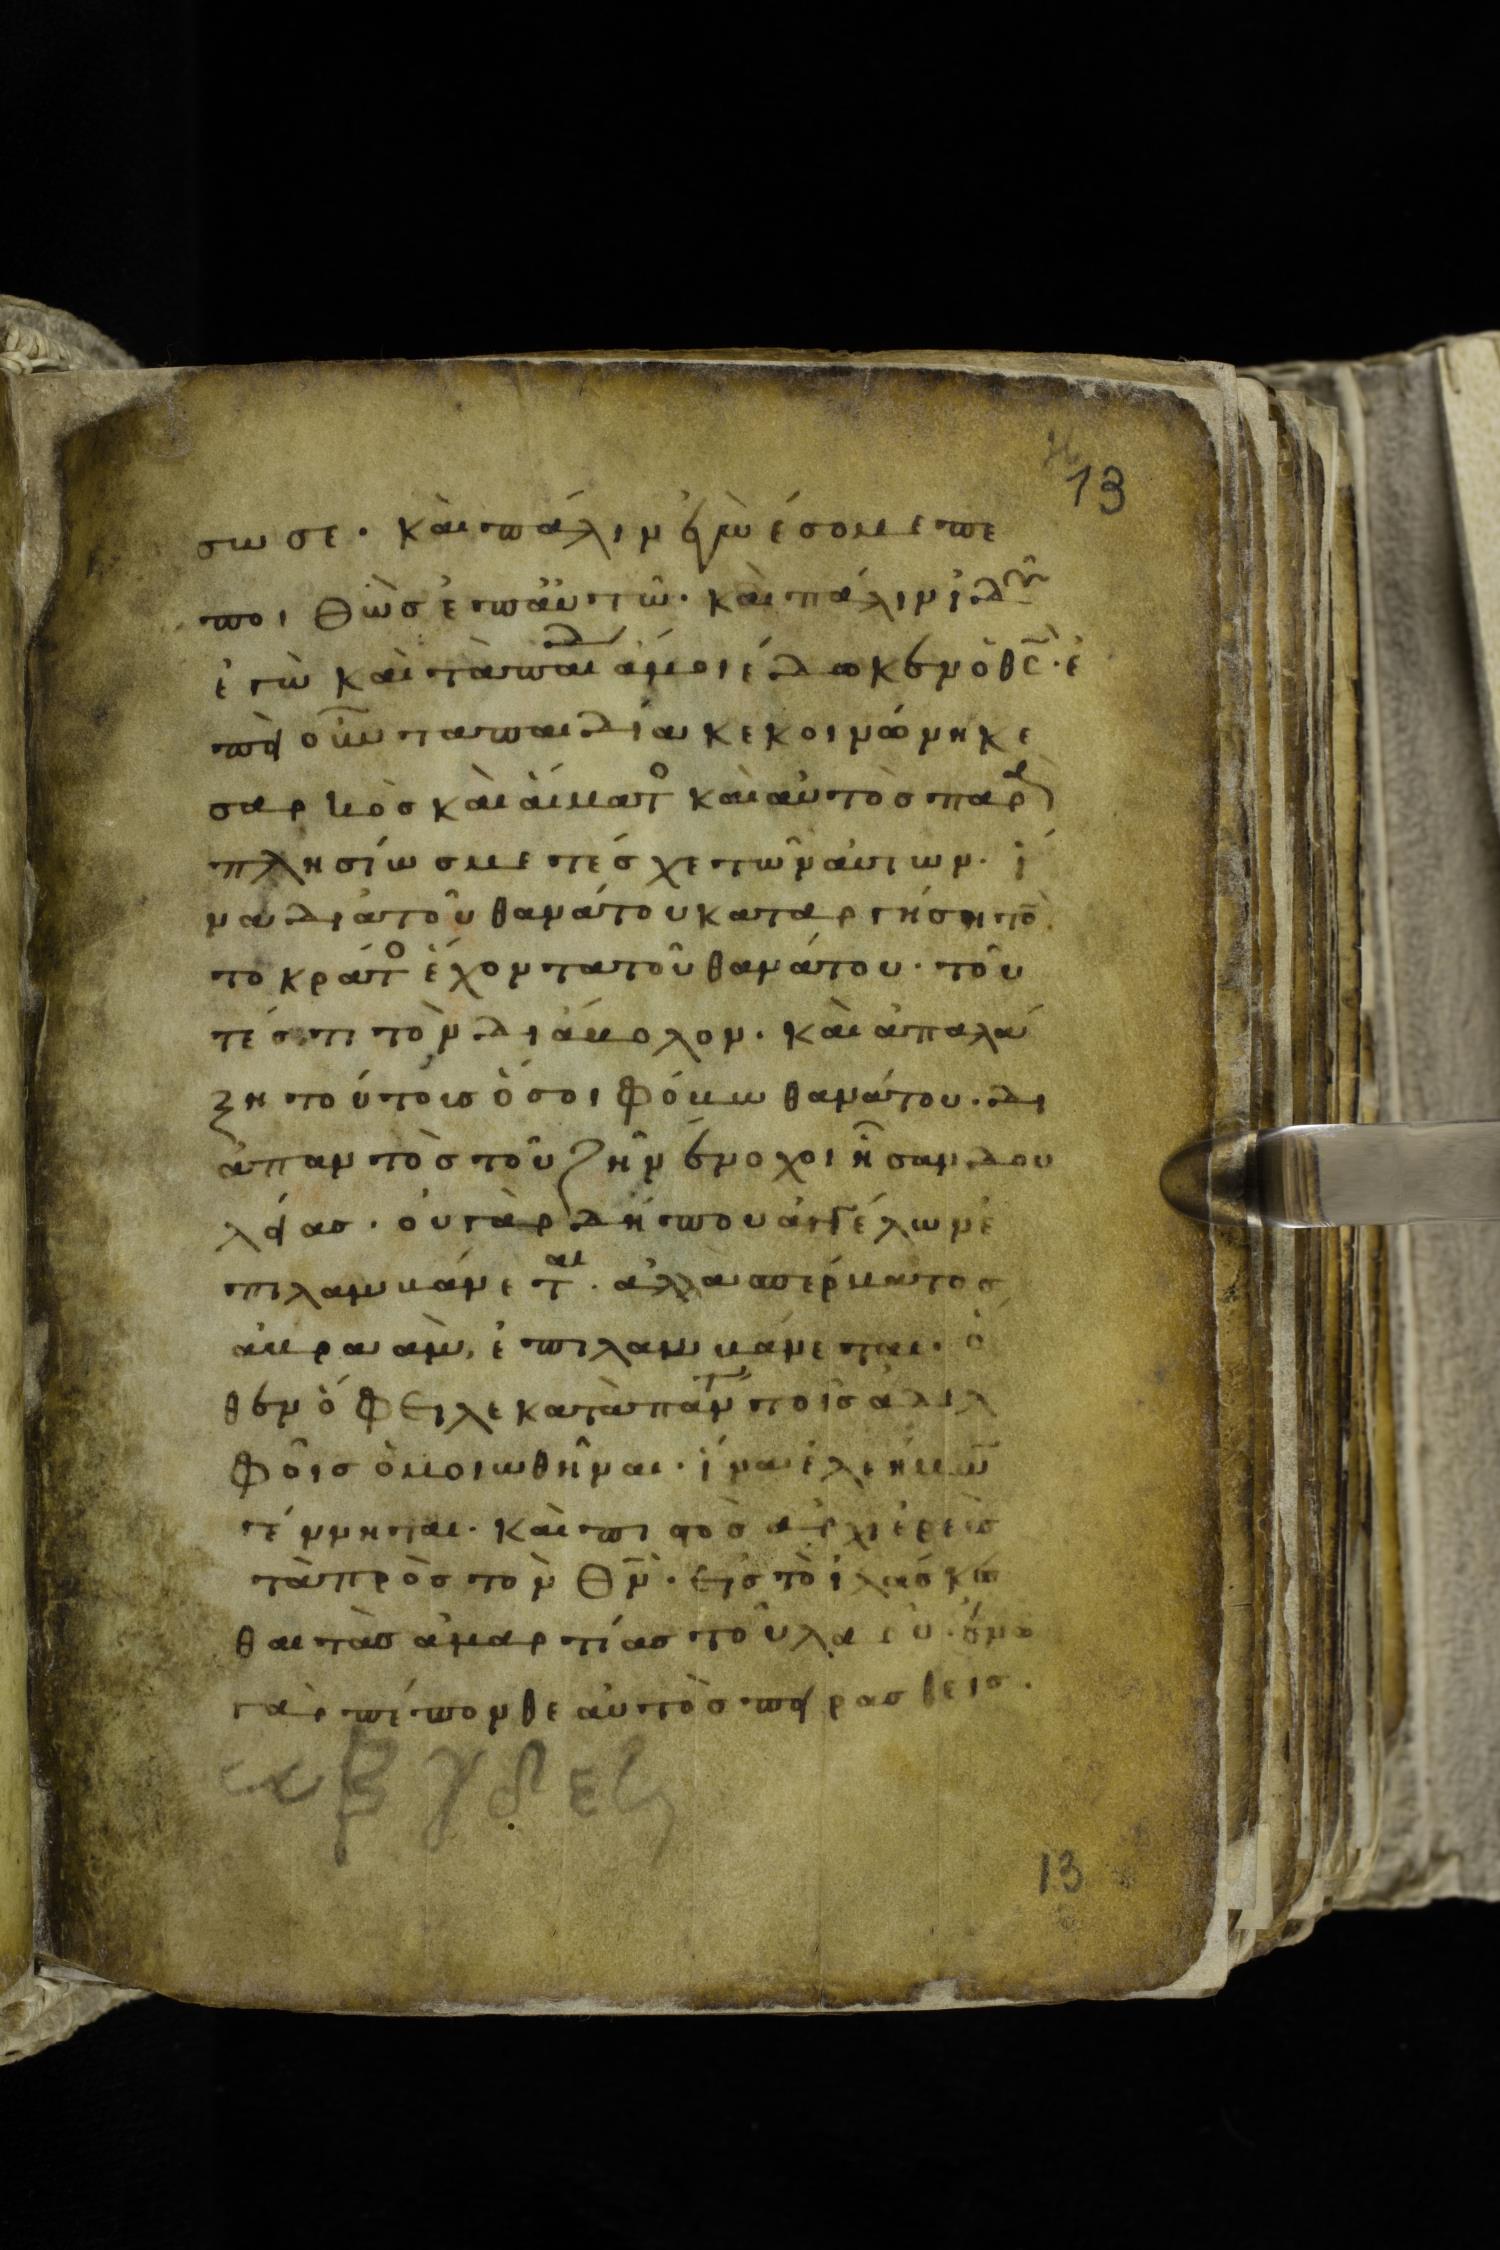 13
σω σε· καὶ πάλιν ἐγὼ ἔσομε πε
ποιθὼς ἐπ αὐτῶ· καὶ πάλιν ἰδοῦ
ἐγὼ καὶ τὰ παιδ ἅ μοι ἔδωκεν ὁ θς· ἐ
πεὶ οὖν τα παιδία κεκοινώνηκε
σαρκὸς καὶ αἵματο καὶ αὐτὸς παρα
πλησίως μετέσχε τῶν αὐτων· ἵ
να διὰ τοῦ θανάτου καταργήση τὸ
το κράτο ἔχοντα τοῦ θανάτου· τοῦ
τέστι τὸν διάβολον· καὶ ἀπαλά
ξη τούτοις ὅσοι φόβω θανάτου· δι
ἀπαντὸς τοῦ ζῆν ἔνοχοι ἦσαν δου
λείας· οὐ γὰρ δήπου ἀγγέλων ἐ
πιλαμβάνεται· ἀλλὰ σπέρματος
ἀβραὰμ, ἐπιλαμβάνεται· ὅ
θεν ὄφειλε κατὰ πάντ τοῖς ἀδελ
φοῖς ὁμοιωθῆναι· ἵνα ἐλεήμω
γέννηται· καὶ πιστὸς ἀρχιερεὺς
τὰ πρὸς τὸν θν· εἰς τὸ ἱλάσκε
θαι τὰς ἁμαρτίας τοῦ λαοῦ· ἐν ω
γὰρ πέπονθε αὐτὸς πειρασθεις·
α β γ δ ε ζ
13